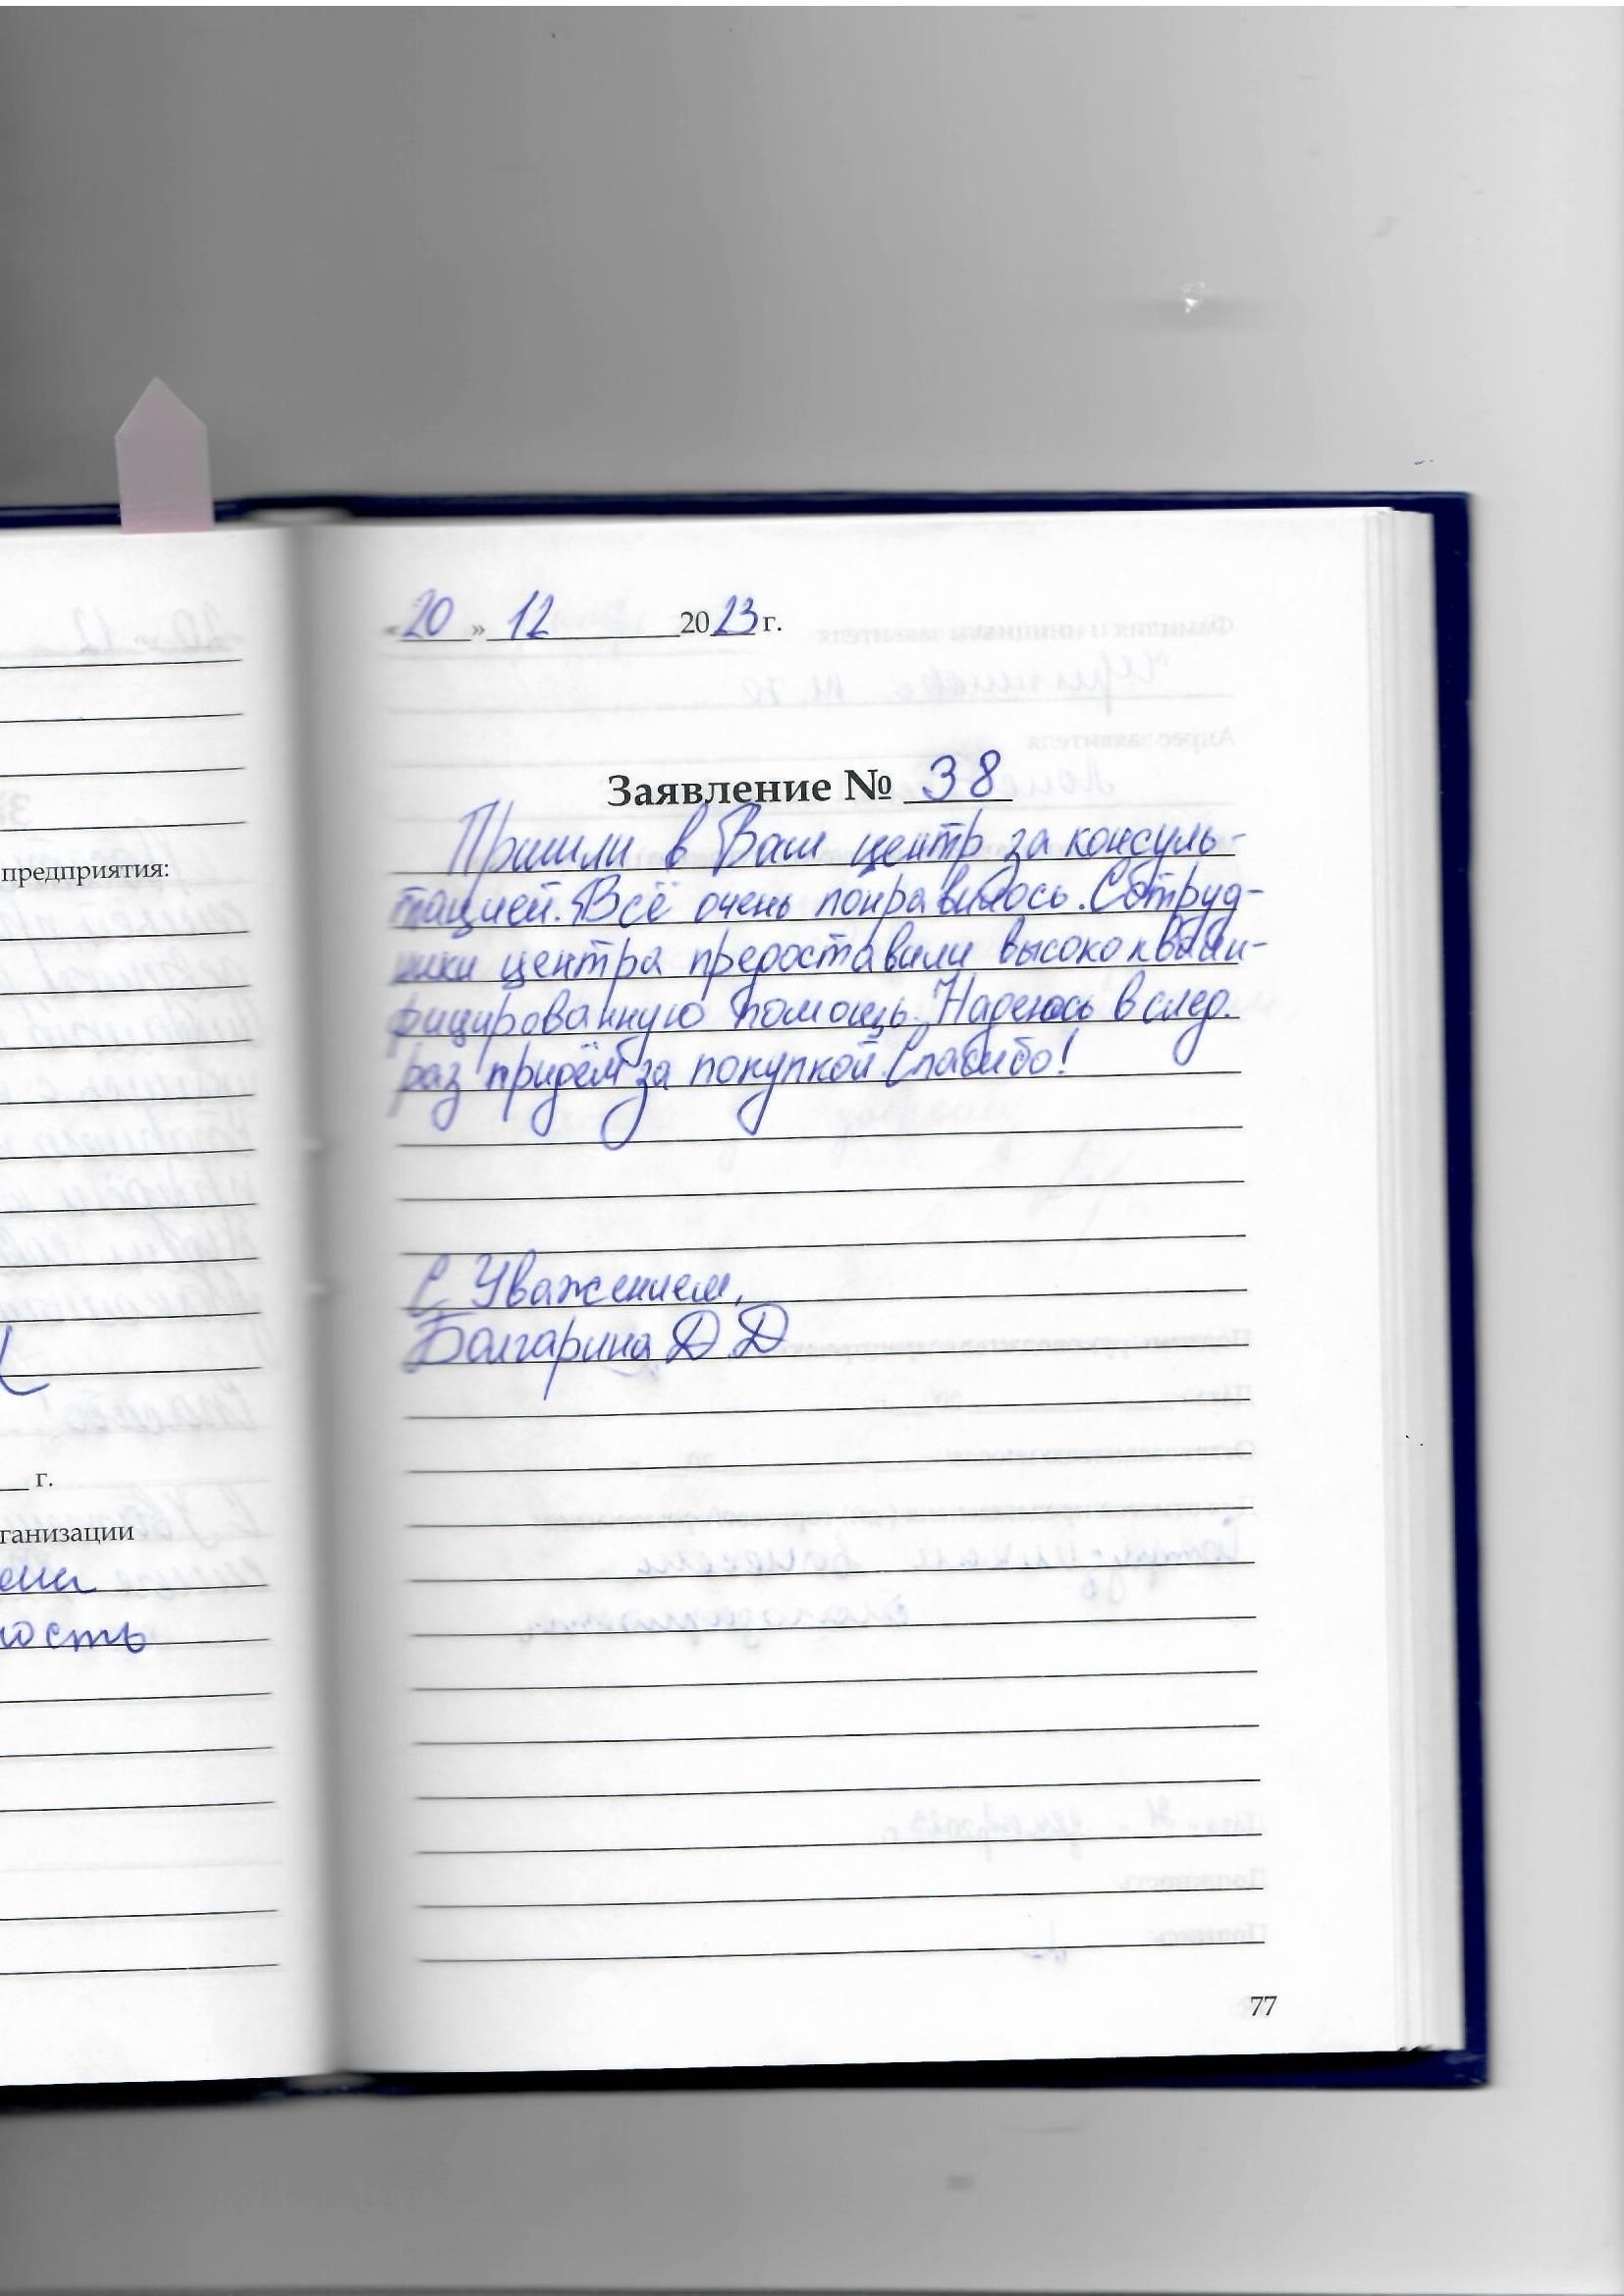 предприятия:
г.
ганизации
ость
«20» 12 2023 г.
Заявление № 38
Пришли в Ваш центр за консуль-
тацией. Всё очень понравилось. Сотруд-
ники центра предоставили высококвали-
фицированную помощь. Надеюсь в след.
раз придём за покупкой. Спасибо!
С Уважением,
Болгарина Д.Д
77